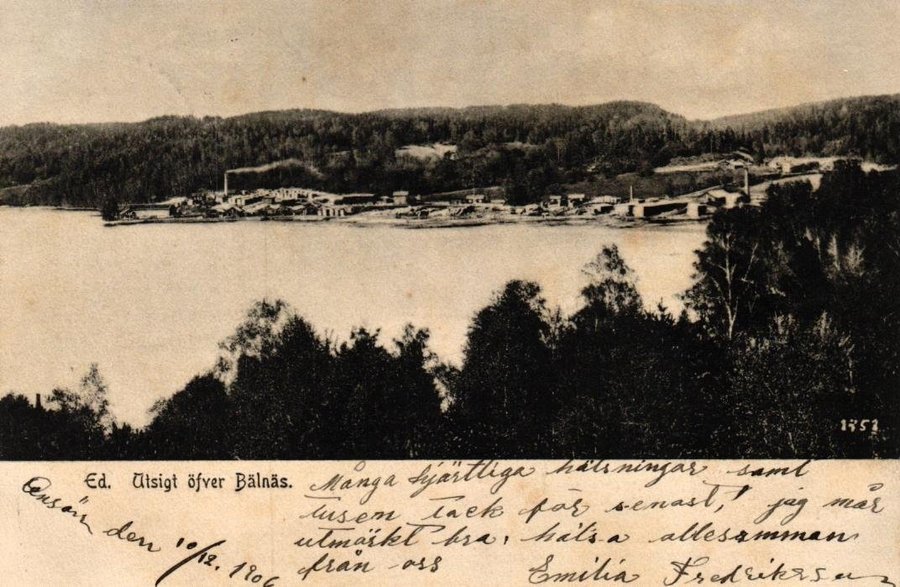 1351
Ed. Utsigt öfver Bälnäs.
Ansön den 10/12. 1906
Många hjärtliga hälsningar samt
tusen tack för senast! jag mår
utmärkt bra, hälsa allesamman
från oss Emilia Fredriksson